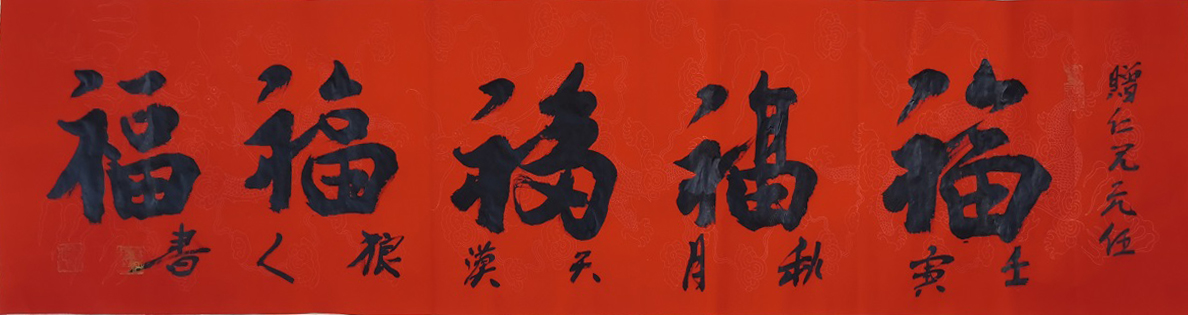 贈仁兄元任
福福福福福
壬寅秋月天漠狼人書